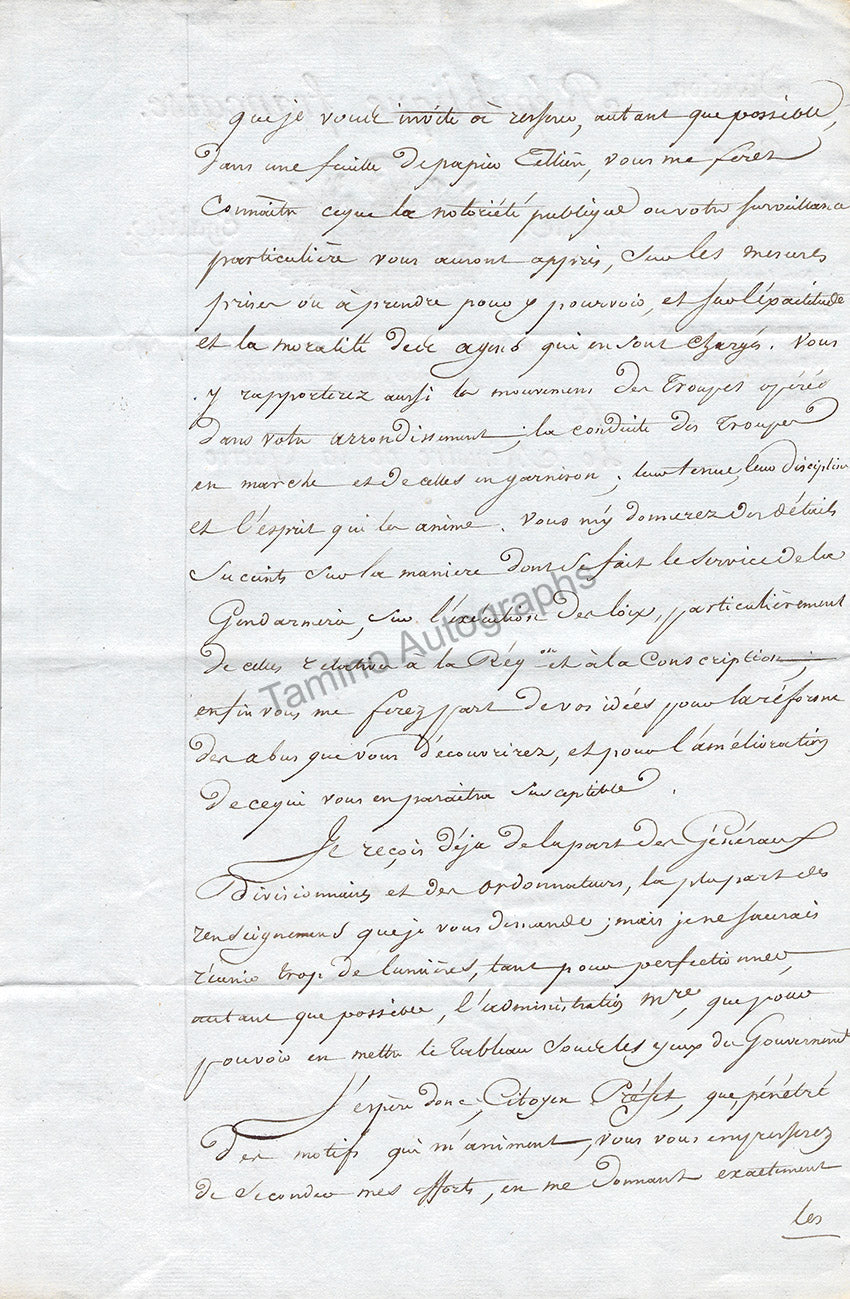 que je vous invite à resserer, autant que possible,
dans une feuille de papier Tellière, vous me ferez
Connaître ce que la notoriété publique ou votre surveillance
particulière vous auront appris, sur les mesures
prises ou à prendre pour y pourvoir, et sur l'éxactitude
et la moralité des agens qui en sont chargés. Vous
y rapporterez aussi les mouvemens des Troupes opérés
dans votre arrondissement ; la conduite des Troupes
en marche et de celles en garnison ; leur tenue, leur discipline
et l'esprit qui les anime. Vous m'y donnerez des détails
succints sur la maniere dont se fait le service de la
Gendarmerie, sur l'éxécution des loix, particulièrement
de celles relatives à la Réq.on et à la Conscription ;
enfin vous me ferez part de vos idées pour la réforme
des abus que vous découvrirez, et pour l'amélioration
de ce qui vous en paraitra susceptible.
Je reçois déja de la part des Généraux
Divisionnaires et des ordonnateurs, la plupart des
renseignemens que je vous demande ; mais je ne saurais
réunir trop de lumières, tant pour perfectionner,
autant que possible, l'administration M.re, que pour
pouvoir en mettre le tableau sous les yeux du Gouvernem.t
J'espère donc, Citoyen Préfet, que, pénétré
des motifs qui m'animent, vous vous empresserez
de seconder mes efforts, en me donnant exactement
les
Tamino Autographs